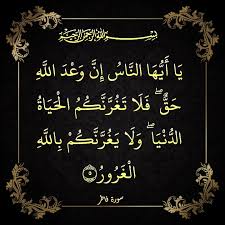 بسم الله الرحمن الرحيم
يَا أَيُّهَا النَّاسُ إِنَّ وَعْدَ اللَّهِ
حَقٌّ ۖ فَلَا تَغُرَّنَّكُمُ الْحَيَاةُ
الدُّنْيَا ۖ وَلَا يَغُرَّنَّكُمْ بِاللَّهِ
الْغَرُورُ ۝٥
سورة فاطر